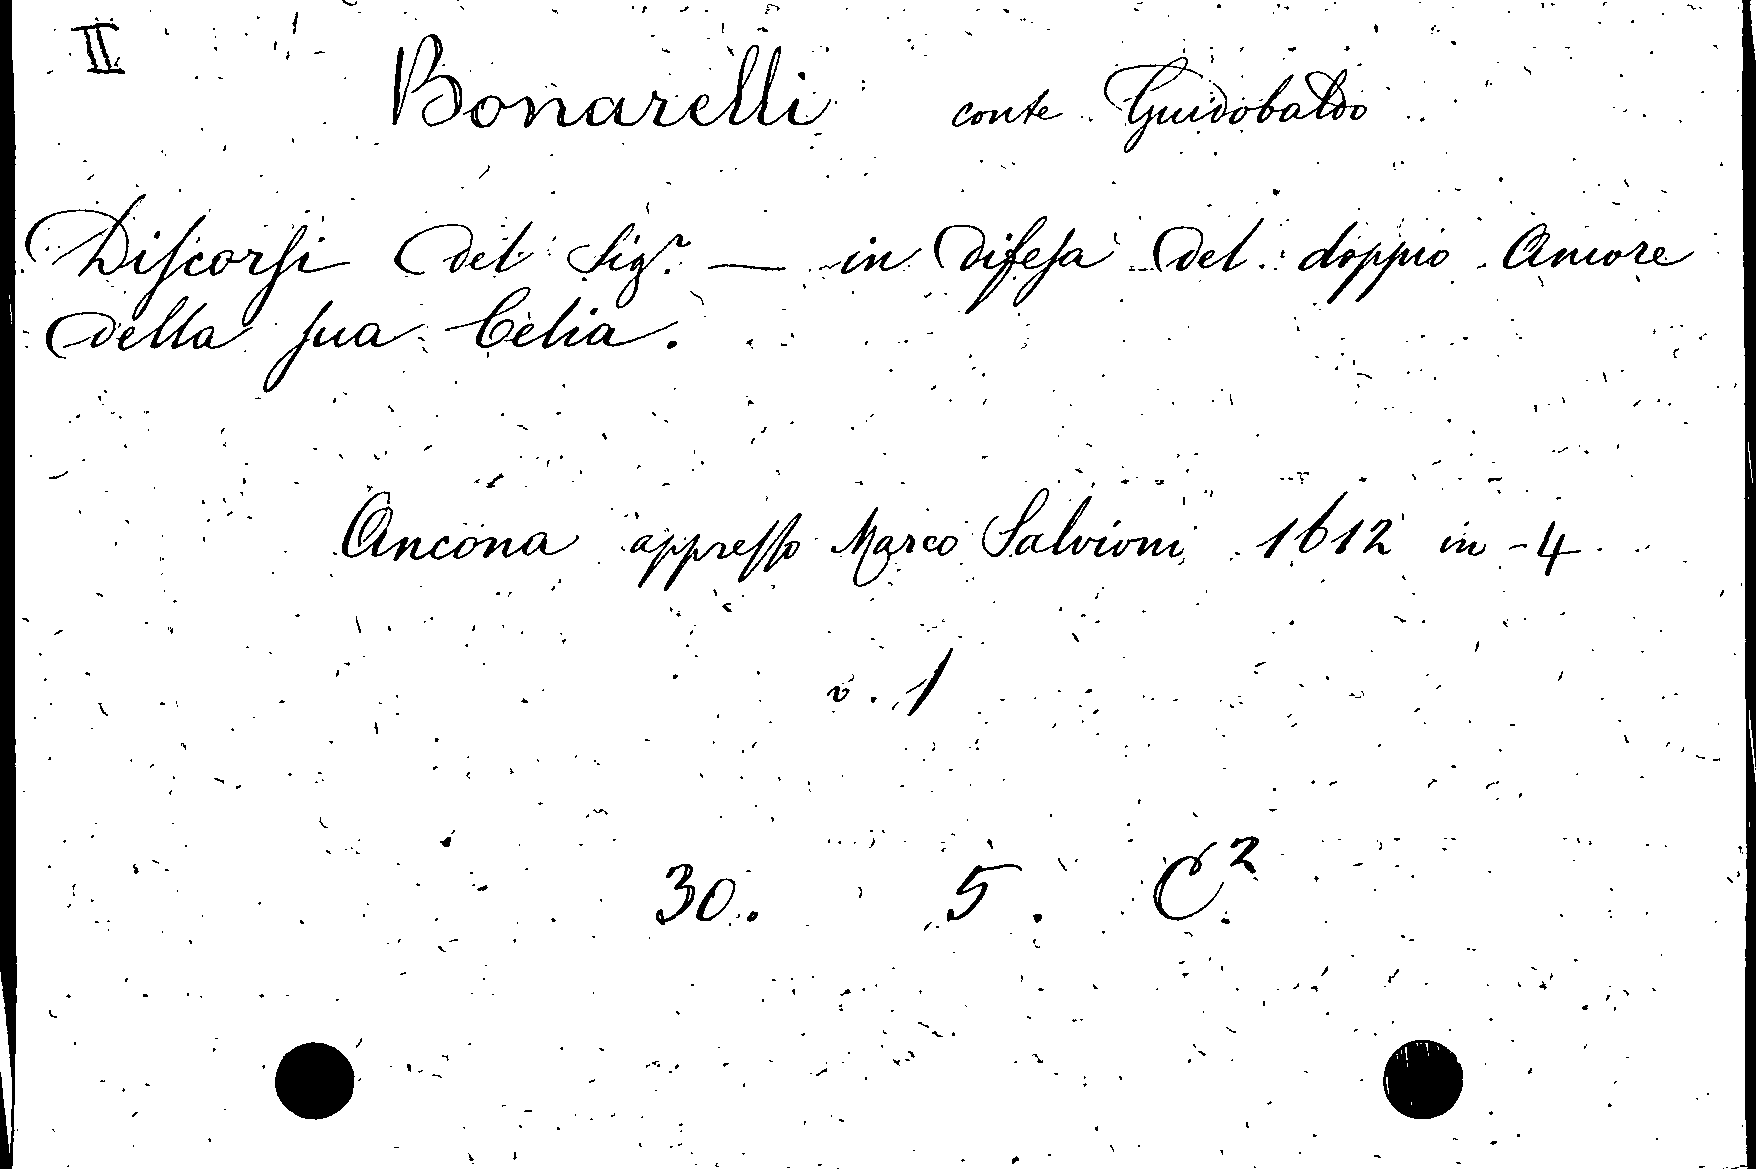 II
Bonarelli conte Guidobaldo
Diſcorſi del Sigʳ. — in difeſa del doppio Amore
della ſua Celia.
Ancona appreſſo Marco Salvioni 1612 in-4
v. 1
30. 5. C²